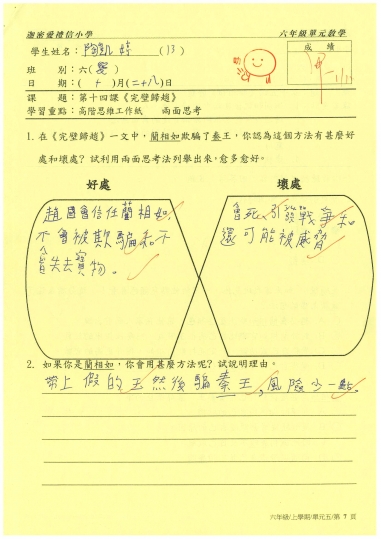 迦密愛禮信小學 六年級單元教學
學生姓名：陶凱婷(13)
成績
班別：六(愛)
日期：(十)月(二十八)日
課題：第十四課《完璧歸趙》
學習重點：高階思維工作紙 兩面思考
1. 在《完璧歸趙》一文中，藺相如欺騙了秦王，你認為這個方法有甚麼好
處和壞處？試利用兩面思考法列舉出來，愈多愈好。
好處 壞處
趙國會信任藺相如，
不會被欺騙和不
會失去寶物。
會死，引發戰爭和
還可能被威脅
2. 如果你是藺相如，你會用甚麼方法呢？試說明理由。
帶上假的玉然後騙秦王，風險少一點。
六年級/上學期/單元五/第 7 頁